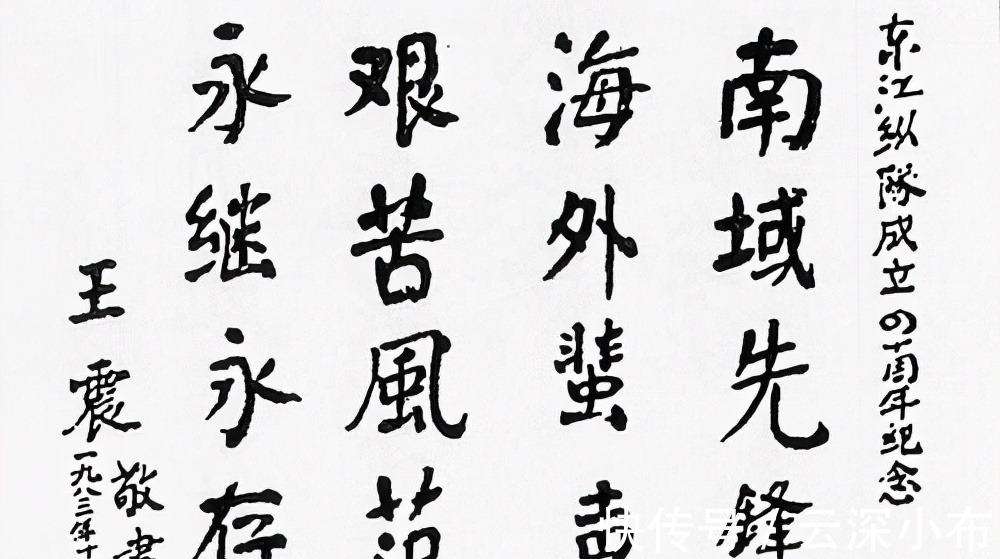 东江纵隊成立四十周年纪念
南域先锋
海外蜚
艰苦風范
永继永存
王震敬書
一九八三年十
快传号 / 云深小布